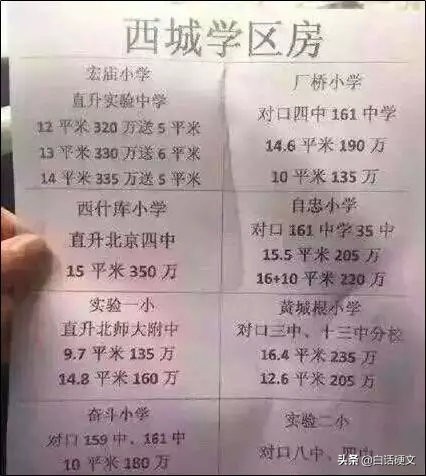 西城学区房
宏庙小学
直升实验中学
12 平米 320 万送 5 平米
13 平米 330 万送 6 平米
14 平米 335 万送 5 平米
厂桥小学
对口四中 161 中学
14.6 平米 190 万
10 平米 135 万
西什库小学
直升北京四中
15 平米 350 万
自忠小学
对口 161 中学 35 中
15.5 平米 205 万
16+10 平米 220 万
实验一小
直升北师大附中
9.7 平米 135 万
14.8 平米 160 万
黄城根小学
对口三中、十三中分校
16.4 平米 235 万
12.6 平米 205 万
奋斗小学
对口 159 中、161 中
10 平米 180 万
实验二小
对口八中、四中
头条 @白话硬文